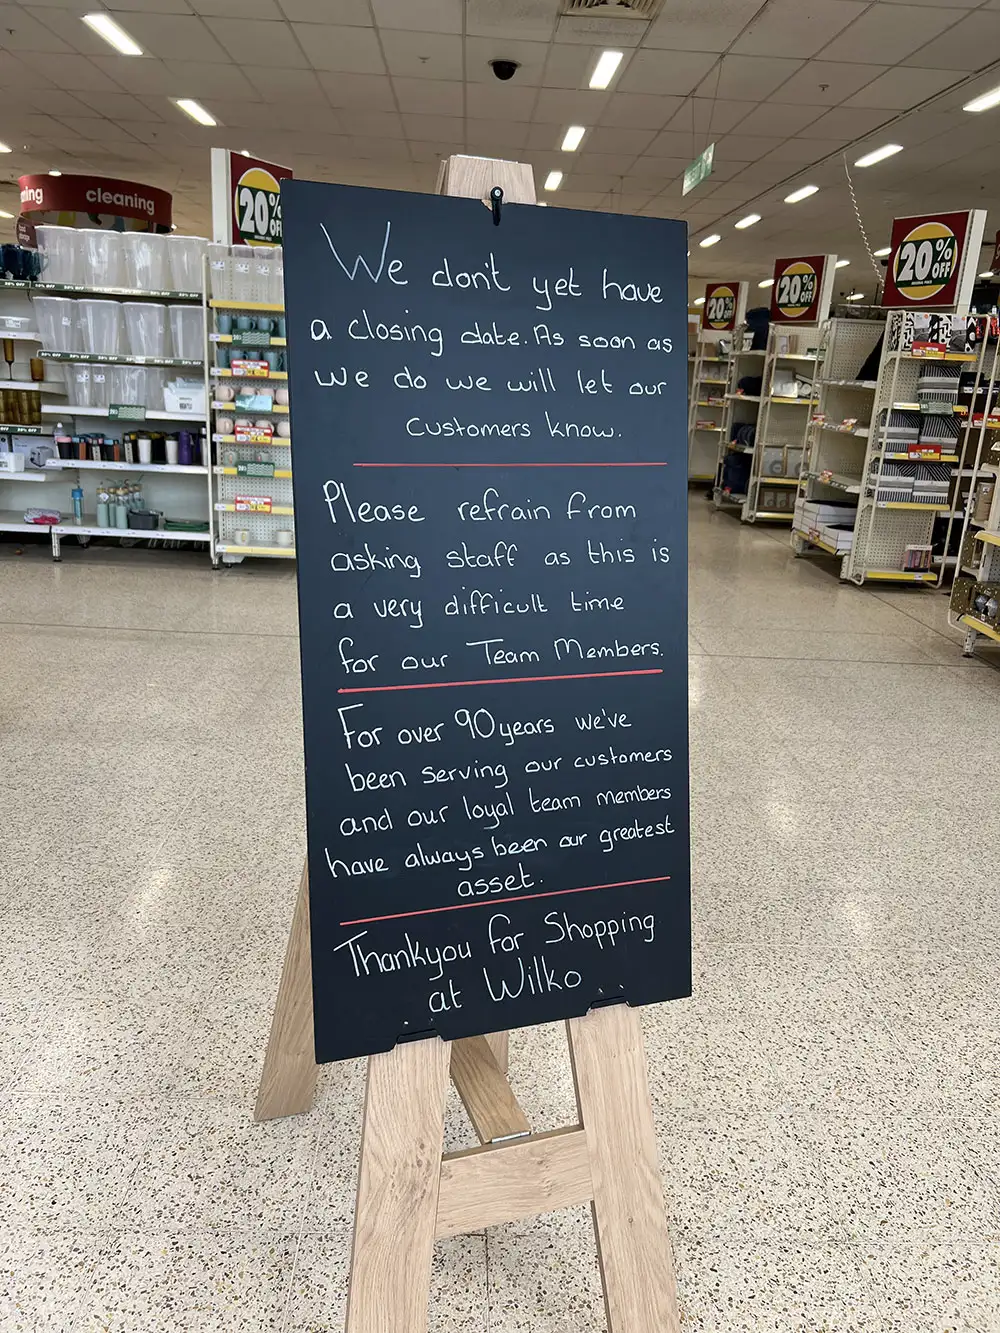 ning
cleaning
20%
OFF
20%
OFF
20%
OFF
20%
OFF
We don't yet have
a closing date. As soon as
we do we will let our
customers know.
Please refrain from
asking staff as this is
a very difficult time
for our Team Members.
For over 90 years we've
been serving our customers
and our loyal team members
have always been our greatest
asset.
Thankyou for Shopping
at Wilko